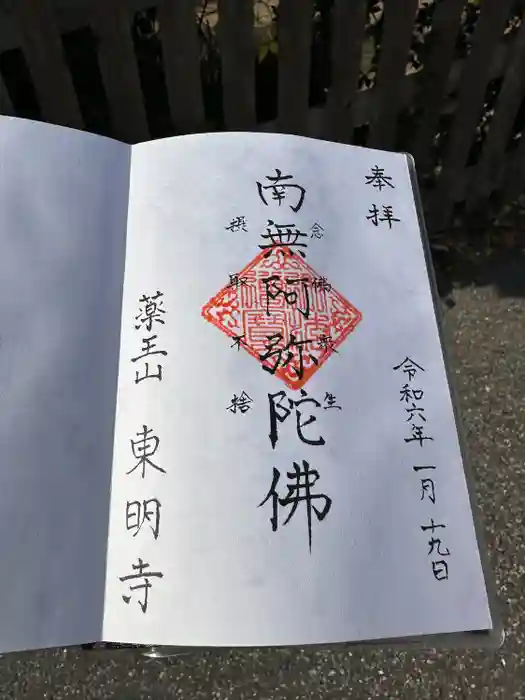 奉拝
令和六年 一月 十九日
念佛衆生
南無阿弥陀佛
摂取不捨
薬王山 東明寺